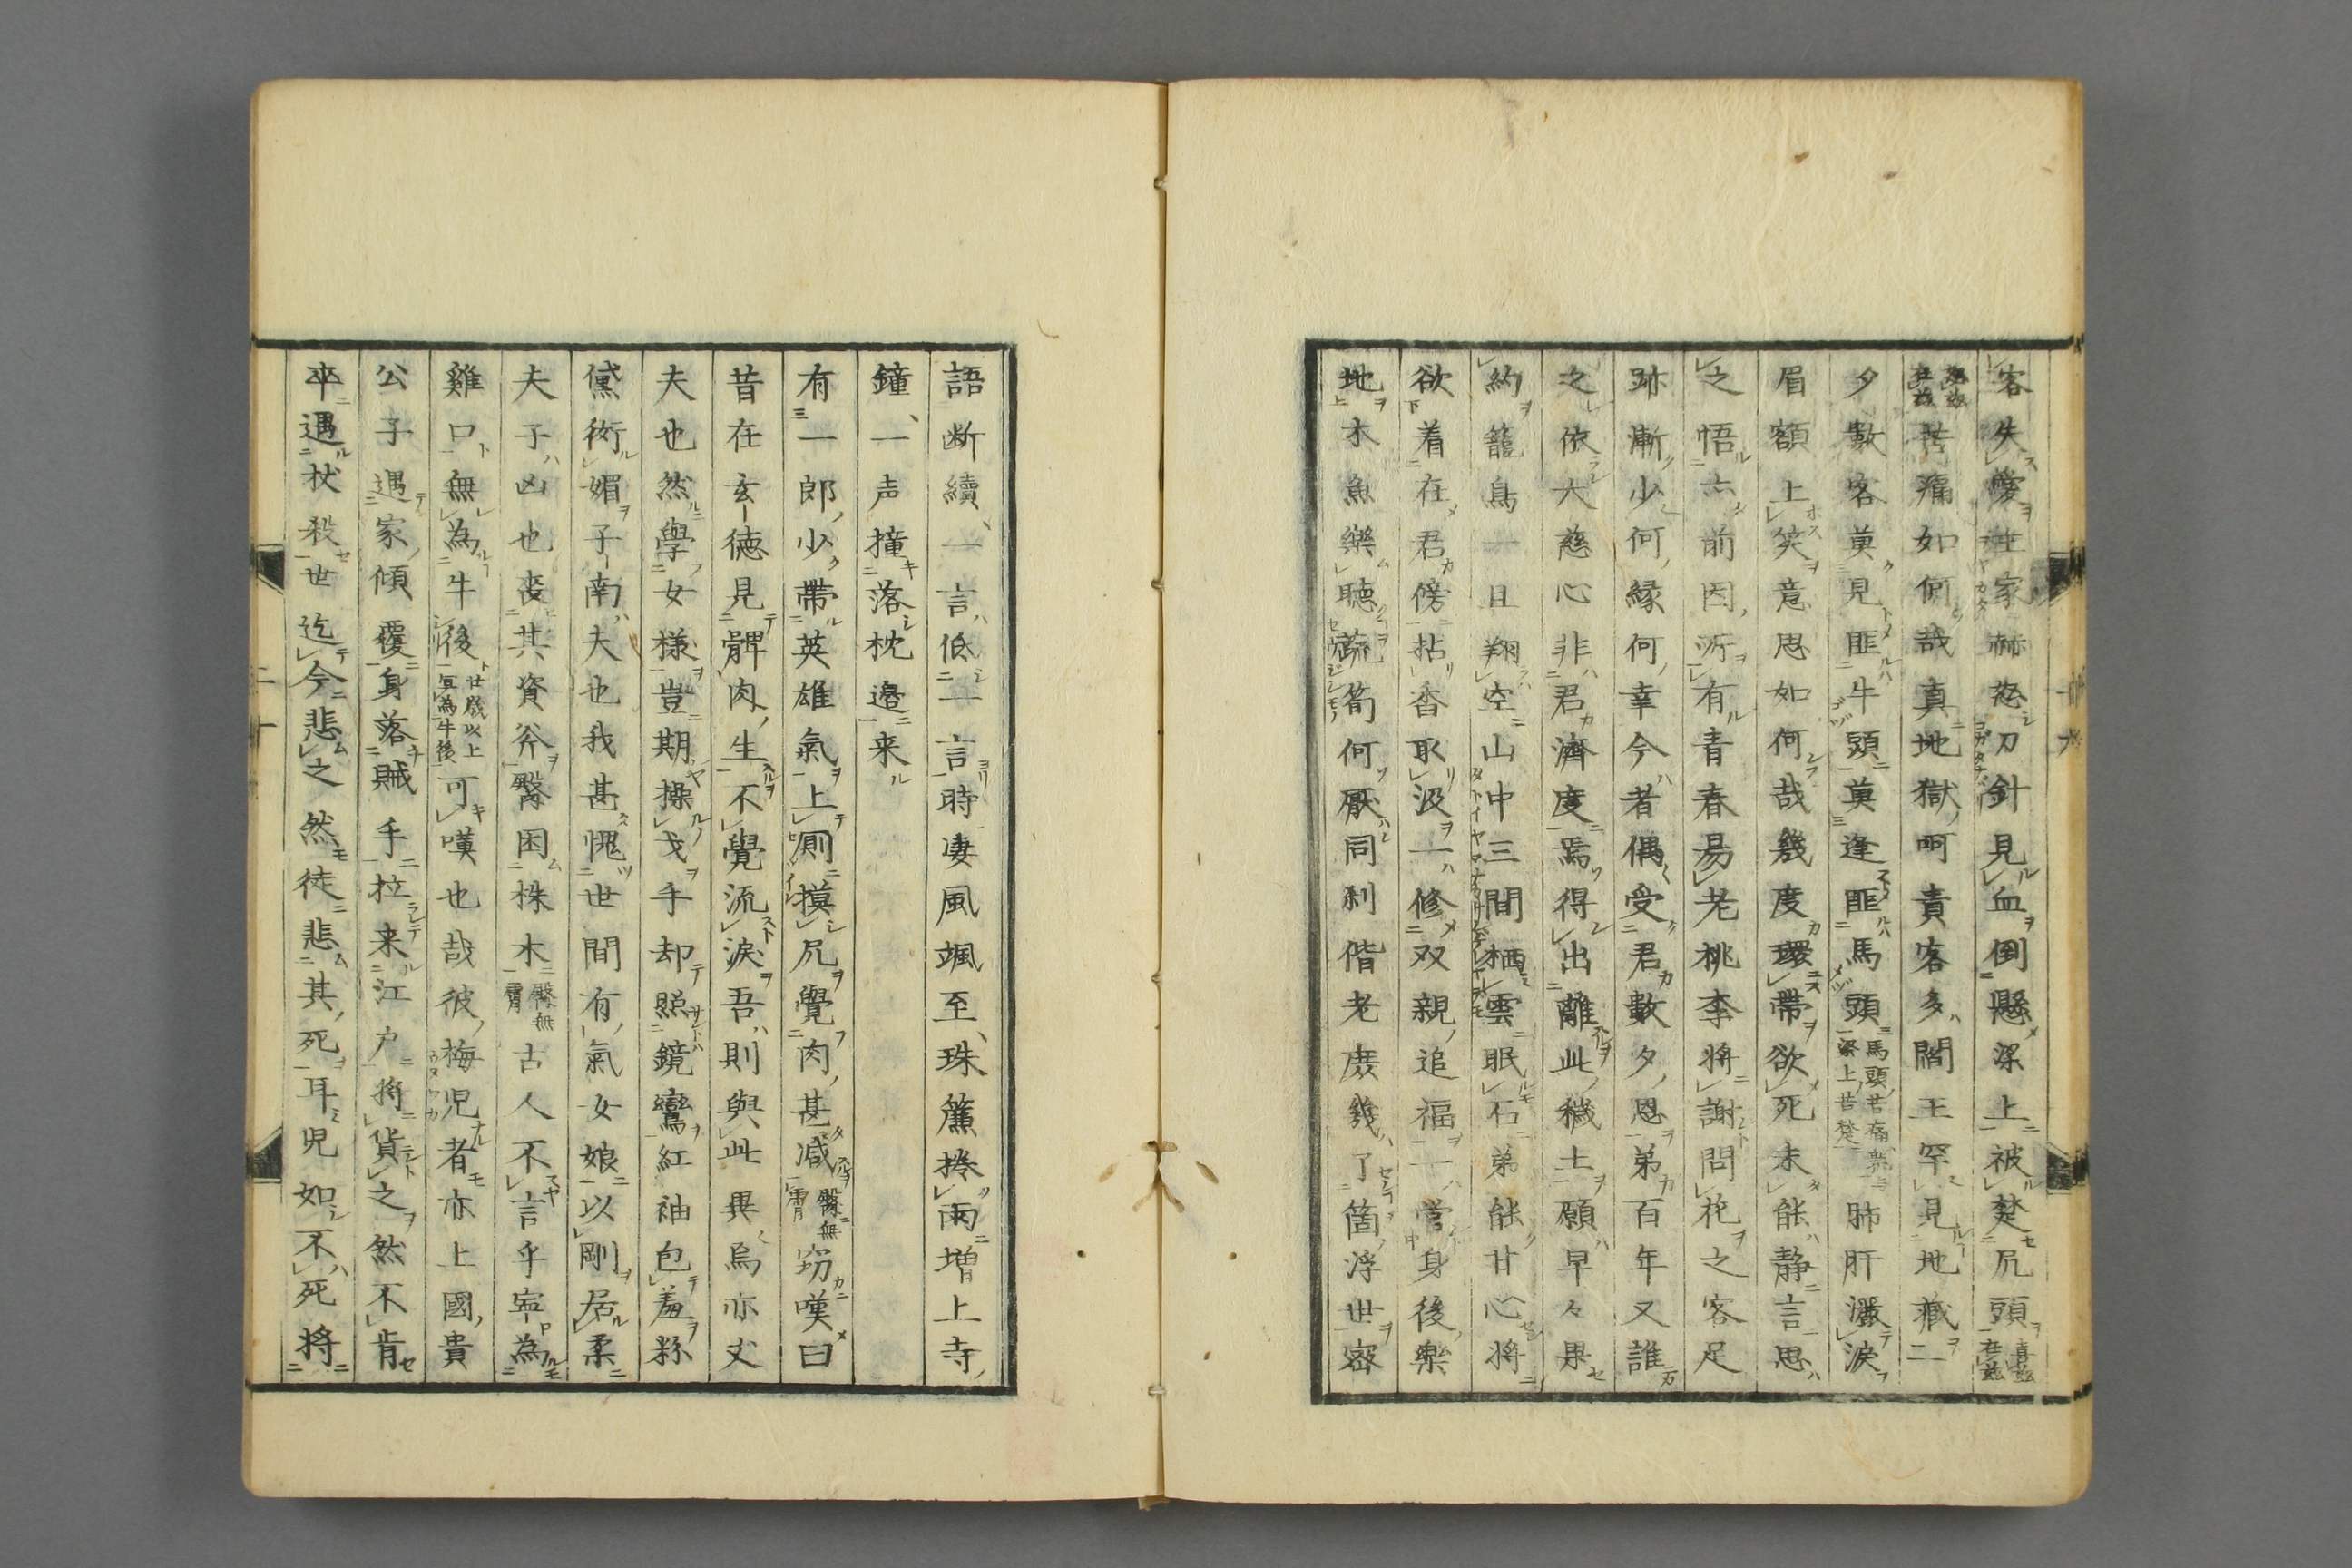 客失愛在家赫怒刀針見血倒懸梁上被楚尻頭
苦痛如何哉真地獄呵責客多閻王罕見地藏一
夕數客莫見匪牛頭莫逢匪馬頭馬頭苦痛梁上苦楚肺肝濺涙
眉額上笑意思如何哉幾度環帶欲死未能静言思
之悟六前因所有青春易老桃李將謝問花之客足
跡漸少何縁何幸今者偶受君數夕恩弟百年又誰
之依大慈心非君濟度焉得出離此穢土願早々果
約籠鳥一旦翔空山中三間栖雲眠石弟能甘心將
欲着在君傍拈香取汲一修双親追福一営身後樂
地木魚樂聴蔬筍何厭同刹偕老庶幾了箇浮世密
語断續一言低一言時凄風颯至珠簾捲雨増上寺
鐘一声撞落枕邉来
有一郎少帶英雄氣上厠摸尻覺肉甚減臀無膚窃嘆曰
昔在玄德見髀肉生不覺流涙吾則與此異烏亦丈
夫也然學女様豈期操戈手却照鏡鸞紅袖包羞粉
黛衒媚子南夫也我甚愧世間有氣女娘以剛居柔
夫子凶也喪其資斧臀困株木臀無膚古人不言乎寧為
雞口無為牛後廿歳以上冝為牛後可嘆也哉彼梅児者亦上國貴
公子遇家傾覆身落賊手拉来江戸將貨之然不肯
卒遇杖殺世迄今悲之然徒悲其死耳児如不死將
二十